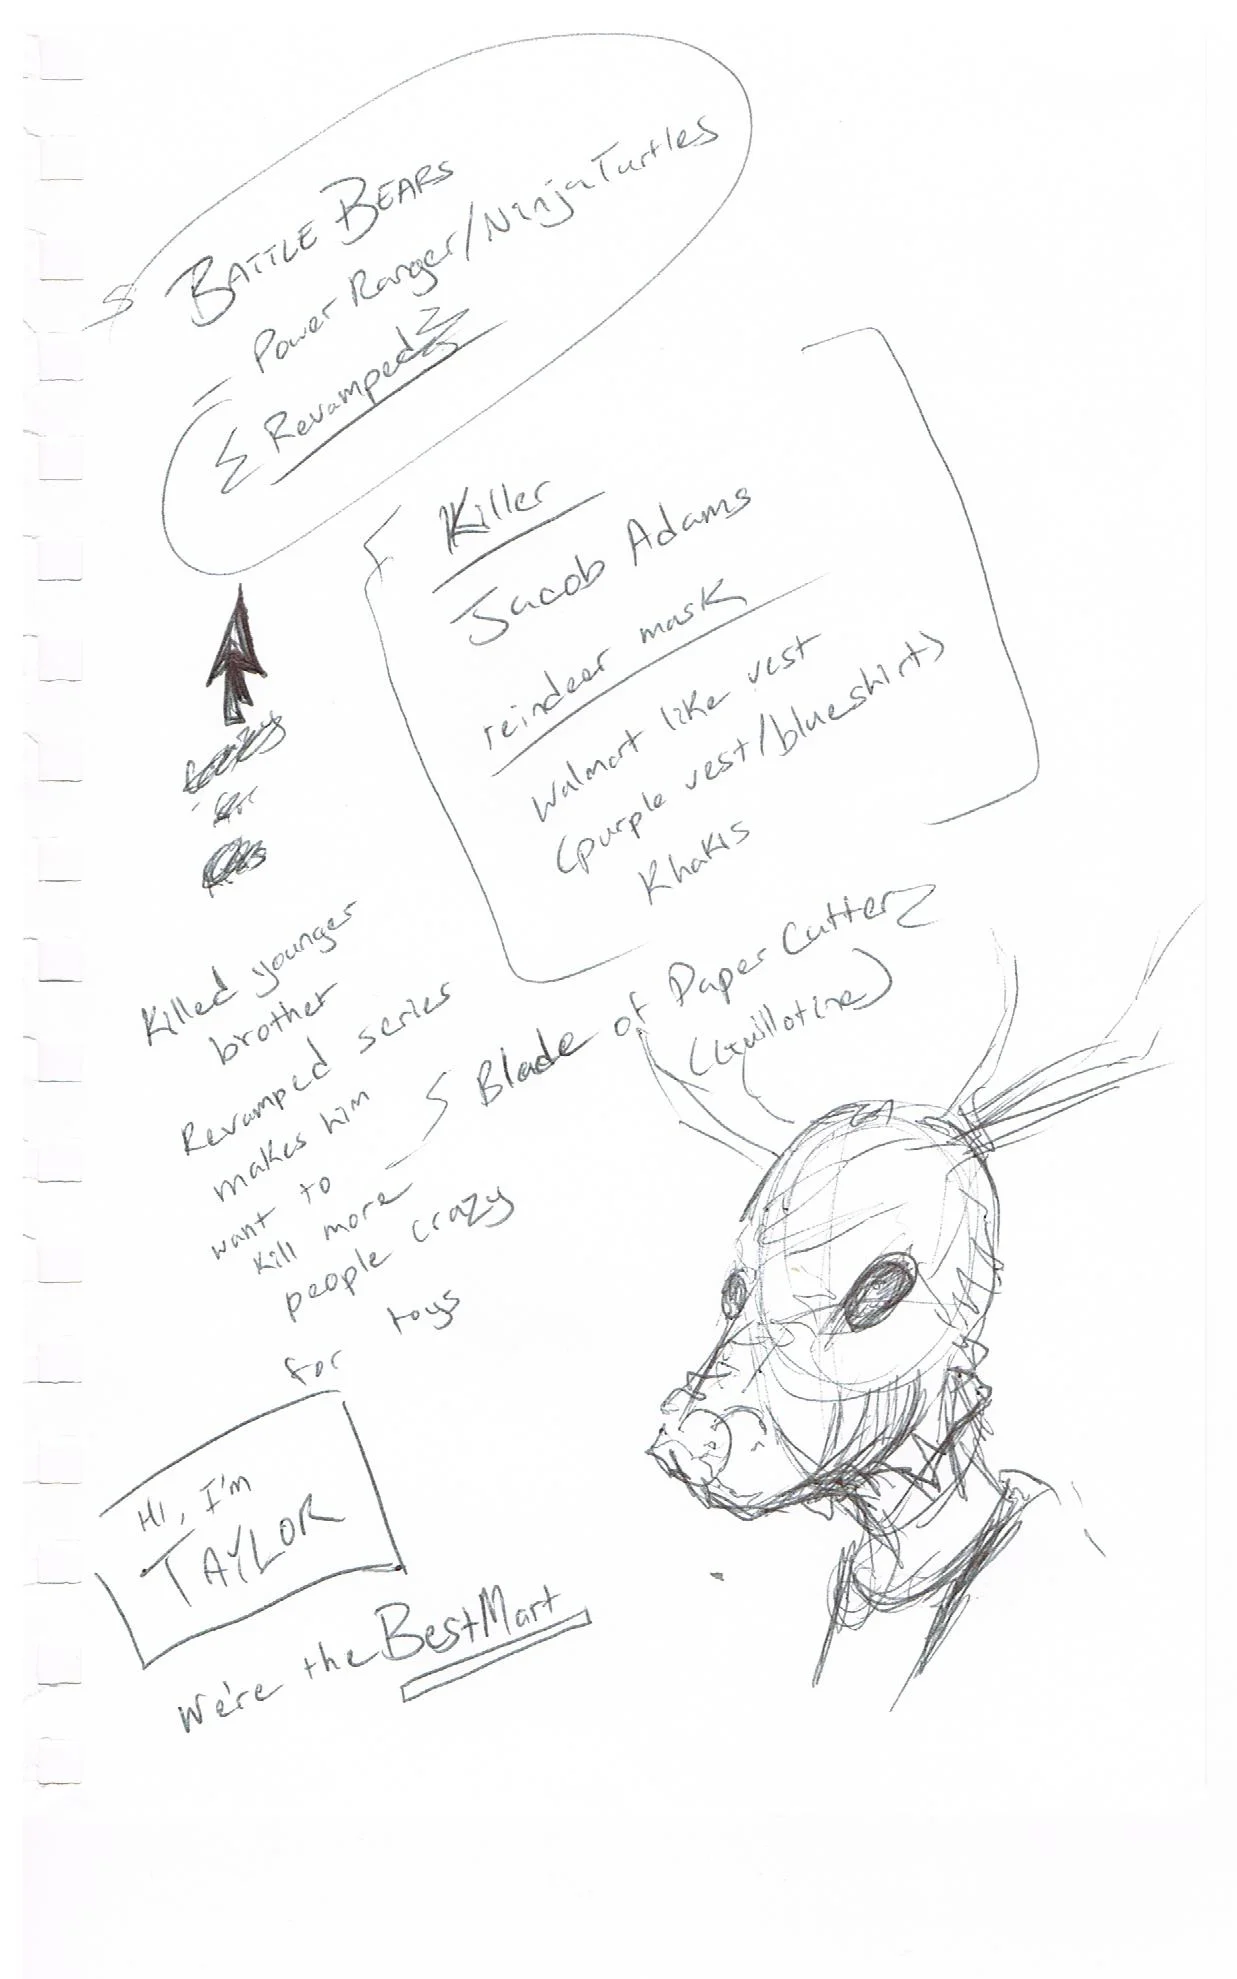 BATTLE BEARS
- Power Ranger/Ninja Turtles
Revamped
Killer
Jacob Adams
reindeer mask
Walmart like vest
(purple vest/blue shirt)
Khakis
Killed younger
brother
Revamped series
makes him
want to
kill more
people crazy
for toys
Blade of Paper Cutter
(Guillotine)
HI, I'm
TAYLOR
We're the BestMart